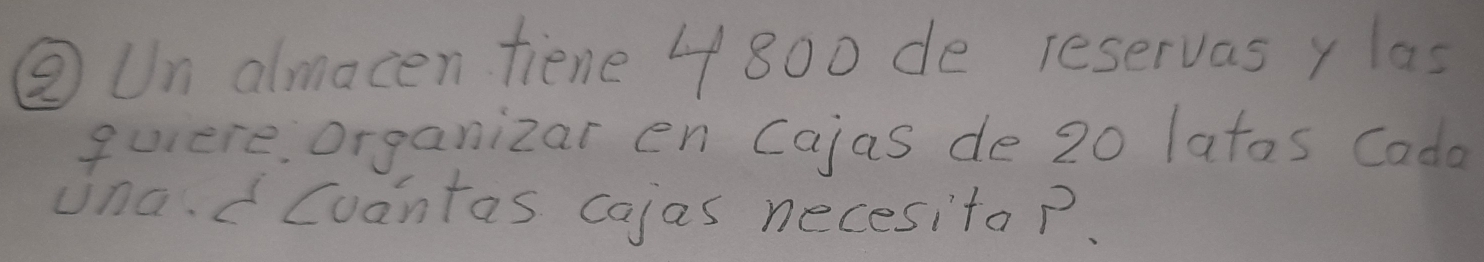 ② Un almacen tiene 4800 de reservas y las
quiere. organizar en cajas de 20 latas cada
una. ¿Cuántas cajas necesita?.